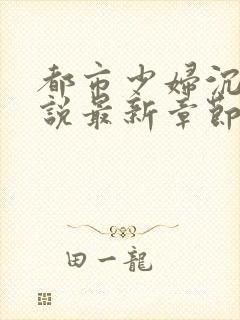 都市少婦沉
說最新章節
田一龍